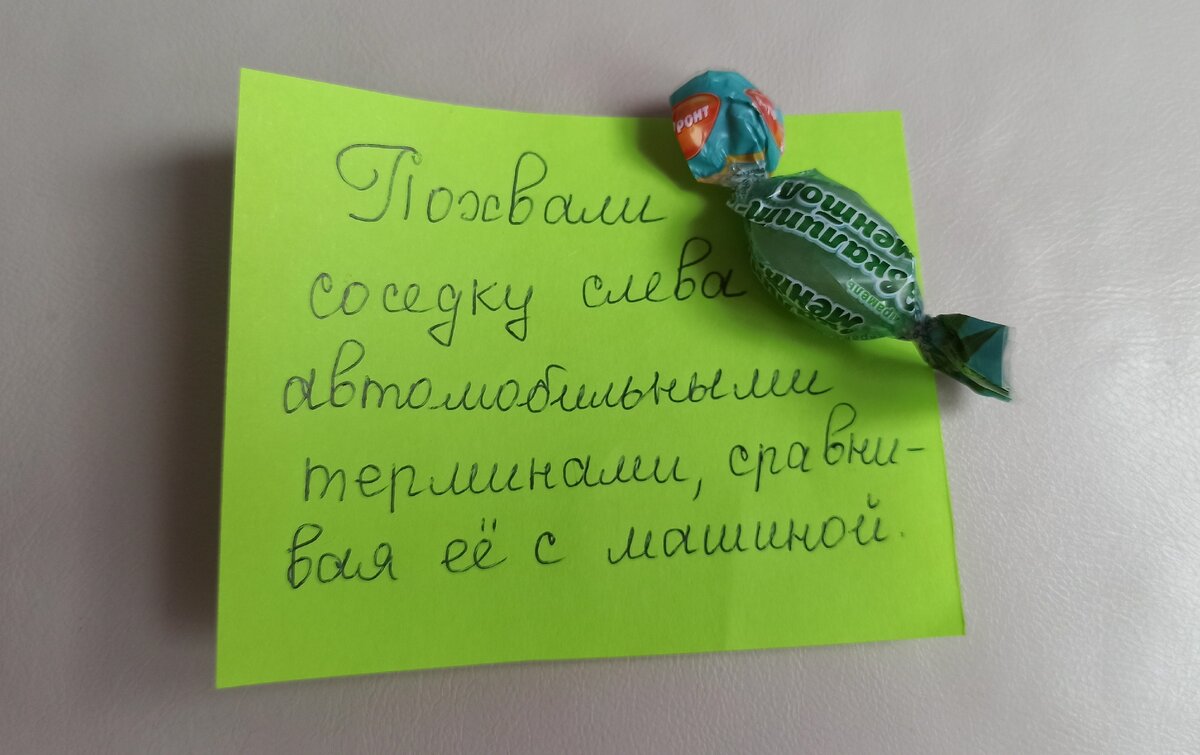 Похвали
соседку слева
автомобильными
терминами, сравни-
вая её с машиной.
РОНТ
ментол
эвкалипт
карамель
мент